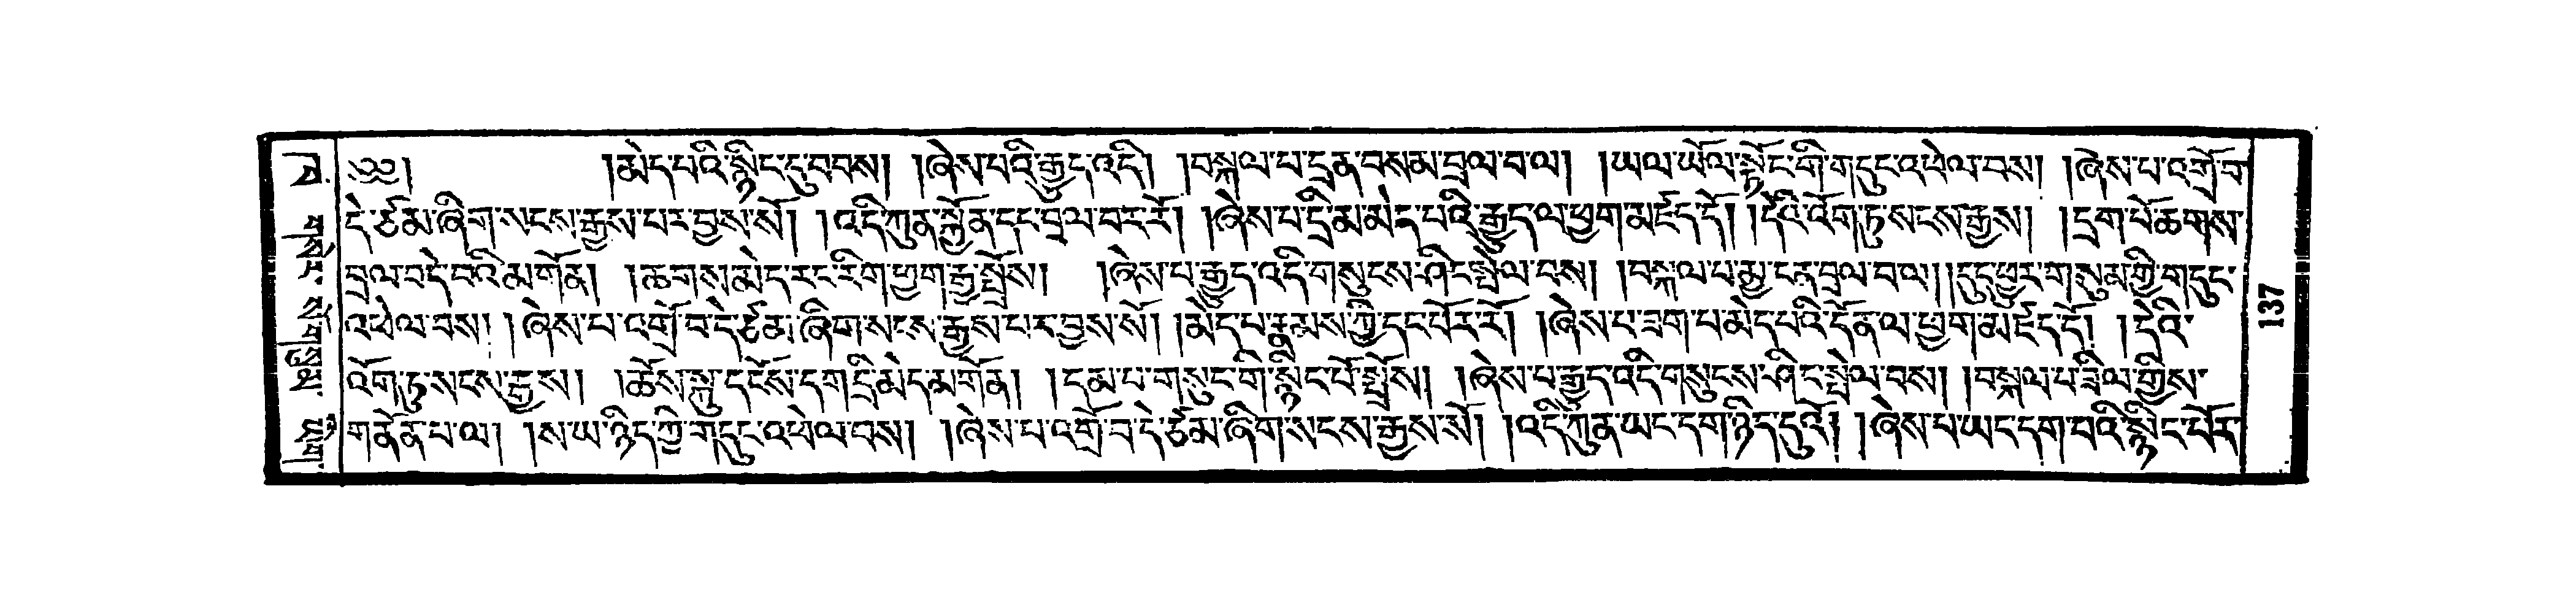 ༄༅། །མེད་པའི་སྙིང་དུ་བབས། །ཞེས་པའི་རྒྱུད་འདི། །བསྐལ་པ་དྲན་བསམ་བྲལ་བ་ལ། །ཡལ་ཡོལ་སྟོང་གི་གདུང་འཕེལ་བས། །ཞེས་པ་འགྲོ་བ་
དེ་ཙམ་ཞིག་སངས་རྒྱས་པར་བྱས་སོ། །འདི་ཀུན་སྐྱོན་དང་བྲལ་བར་རོ། །ཞེས་པ་དྲི་མ་མེད་པའི་རྒྱུད་ལ་ཕྱག་མཛད་དོ། །དེའི་འོག་ཏུ་སངས་རྒྱས། །དྲག་པོ་ཆགས་
བྲལ་བདེ་བའི་མགོན། །ཆགས་མེད་རང་རིག་ཕྱག་རྒྱ་སྤྲོས། །ཞེས་པ་རྒྱུད་འདི་གསུངས་ཤིང་སྤེལ་བས། །བསྐལ་པ་མྱ་ངན་བྲལ་བ་ལ། །དུད་ཕྱུར་གསུམ་གྱི་གདུང་
འཕེལ་བས། །ཞེས་པ་འགྲོ་བ་དེ་ཙམ་ཞིག་སངས་རྒྱས་པར་བྱས་སོ། །མེད་པ་རྣམས་ཀྱི་དང་པོར་རོ། །ཞེས་པ་ཟག་པ་མེད་པའི་དོན་ལ་ཕྱག་མཛད་དོ། །དེའི་
འོག་ཏུ་སངས་རྒྱས། །ཆོས་སྐུ་དངོས་དག་དྲི་མེད་མགོན། །དམ་པ་གསུང་གི་སྙིང་པོ་སྤྲོས། །ཞེས་པ་རྒྱུད་འདི་གསུངས་ཤིང་སྤེལ་བས། །བསྐལ་པ་ཟིལ་གྱིས་
གནོན་པ་ལ། །ས་ཡ་ཉིད་ཀྱི་གདུང་འཕེལ་བས། །ཞེས་པ་འགྲོ་བ་དེ་ཙམ་ཞིག་སངས་རྒྱས་སོ། །འདི་ཀུན་ཡང་དག་ཉིད་དུའོ། །ཞེས་པ་ཡང་དག་པའི་སྙིང་པོར་